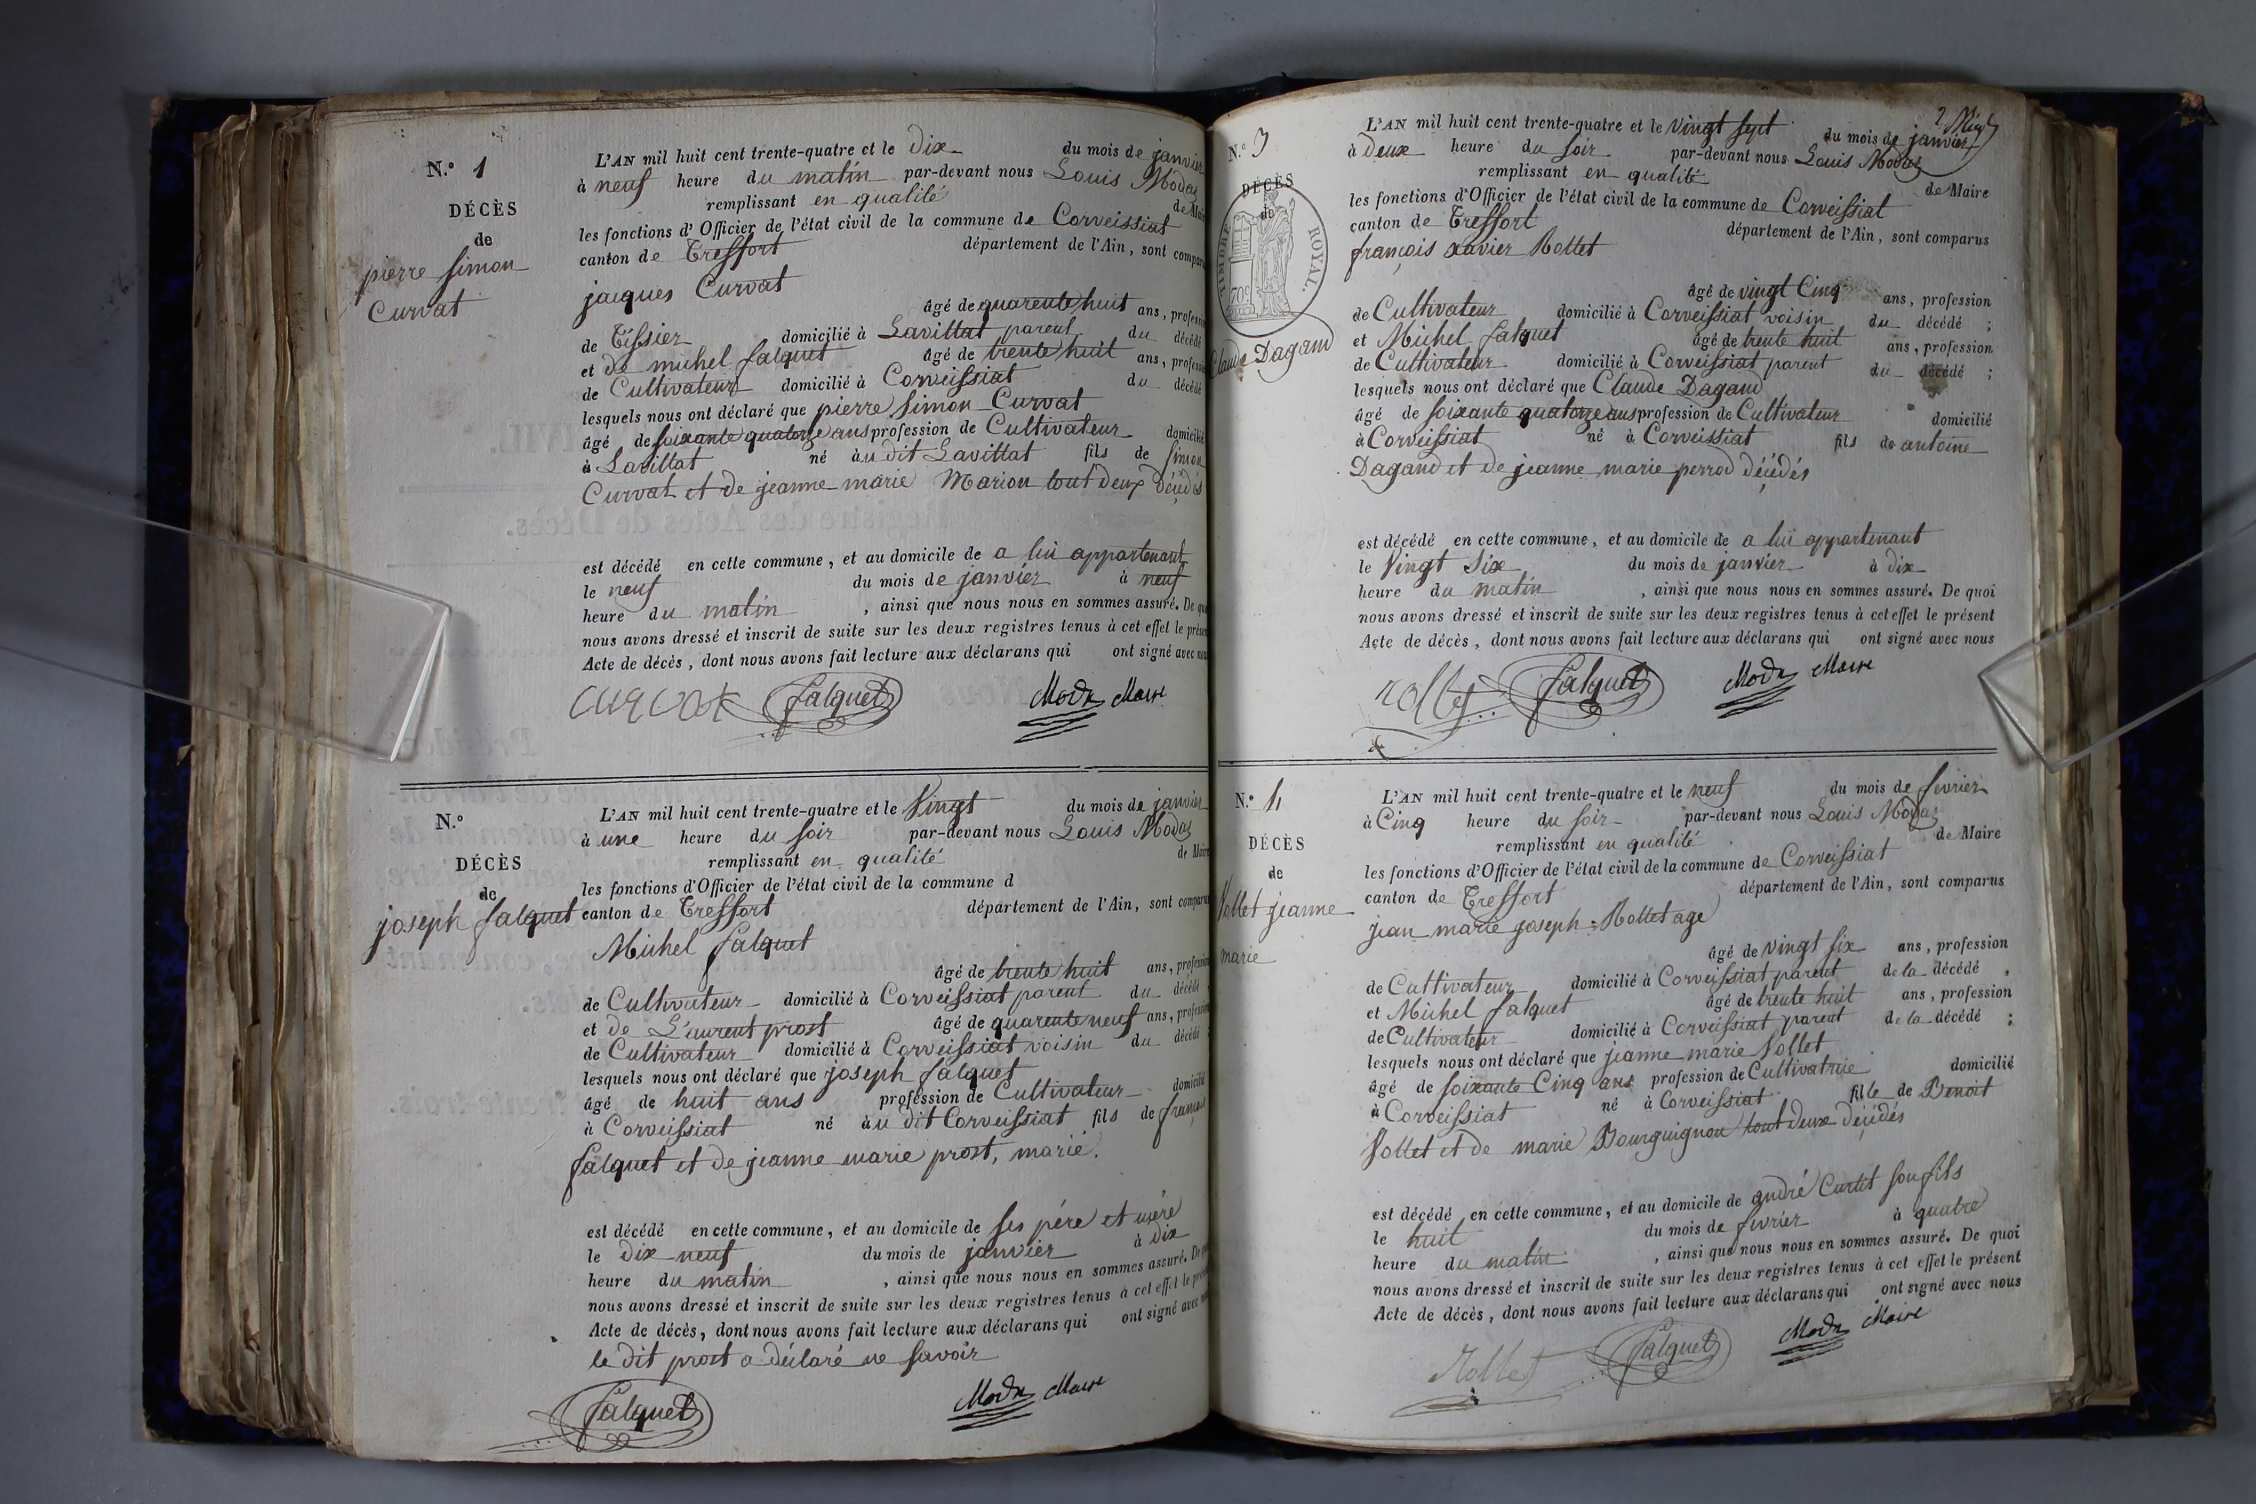 N.° 1
DÉCÈS
de
pierre Simon
Curvat
L'AN mil huit cent trente-quatre et le dix du mois de janvier
à neuf heure du matin par-devant nous Louis Modas
remplissant en qualité de Maire
les fonctions d'Officier de l'état civil de la commune de Corveissiat
canton de Treffort département de l'Ain, sont comparus
jacques Curvat
âgé de quarente huit ans, profession
de Tissier domicilié à Lavillat parent du décédé
et de michel falquet âgé de trente huit ans, profession
de Cultivateur domicilié à Corveissiat du décédé
lesquels nous ont déclaré que pierre Simon Curvat
âgé de soixante quatorze ans profession de Cultivateur domicilié
à Lavillat né àu dit Lavillat fils de Simon
Curvat et de jeanne marie Marion tout deux décédés
est décédé en cette commune, et au domicile de a lui appartenant
le neuf du mois de janvier à neuf
heure du matin, ainsi que nous nous en sommes assuré. De quoi
nous avons dressé et inscrit de suite sur les deux registres tenus à cet effet le présent
Acte de décès, dont nous avons fait lecture aux déclarans qui ont signé avec nous
curvat falquet Modas Maire
N.°
DÉCÈS
de
joseph falquet
L'AN mil huit cent trente-quatre et le Vingt du mois de janvier
à une heure du soir par-devant nous Louis Modas
remplissant en qualité de Maire
les fonctions d'Officier de l'état civil de la commune d
canton de Treffort département de l'Ain, sont comparus
Michel falquet
âgé de trente huit ans, profession
de Cultivateur domicilié à Corveissiat parent du décédé
et de Laurent prost âgé de quarente neuf ans, profession
de Cultivateur domicilié à Corveissiat voisin du décédé
lesquels nous ont déclaré que joseph falquet
âgé de huit ans profession de Cultivateur domicilié
à Corveissiat né àu dit Corveissiat fils de françois
falquet et de jeanne marie prost, marié.
est décédé en cette commune, et au domicile de ses père et mère
le dix neuf du mois de janvier à dix
heure du matin, ainsi que nous nous en sommes assuré. De quoi
nous avons dressé et inscrit de suite sur les deux registres tenus à cet effet le présent
Acte de décès, dont nous avons fait lecture aux déclarans qui ont signé avec nous
le dit prost a déclaré ne savoir
falquet Modas Maire
N.° 3
DÉCÈS
de
TIMBRE ROYAL.
70c
Claude Dagand
L'AN mil huit cent trente-quatre et le Vingt sept du mois de janvier
à Deux heure du soir par-devant nous Louis Modas
remplissant en qualité de Maire
les fonctions d'Officier de l'état civil de la commune de Corveissiat
canton de Treffort département de l'Ain, sont comparus
françois xavier Rollet
âgé de vingt Cinq ans, profession
de Cultivateur domicilié à Corveissiat voisin du décédé ;
et Michel falquet âgé de trente huit ans, profession
de Cultivateur domicilié à Corveissiat parent du décédé ;
lesquels nous ont déclaré que Claude Dagand
âgé de soixante quatorze ans profession de Cultivateur domicilié
à Corveissiat né à Corveissiat fils de antoine
Dagand et de jeanne marie perrod décédés
est décédé en cette commune, et au domicile de a lui appartenant
le Vingt Six du mois de janvier à dix
heure du matin, ainsi que nous nous en sommes assuré. De quoi
nous avons dressé et inscrit de suite sur les deux registres tenus à cet effet le présent
Acte de décès, dont nous avons fait lecture aux déclarans qui ont signé avec nous
rollet falquet Modas Maire
N.° 4
DÉCÈS
de
Vollet jeanne
marie
L'AN mil huit cent trente-quatre et le neuf du mois de fivrier
à Cinq heure du soir par-devant nous Louis Modas
remplissant en qualité de Maire
les fonctions d'Officier de l'état civil de la commune de Corveissiat
canton de Treffort département de l'Ain, sont comparus
jean marie joseph Rollet age
âgé de vingt six ans, profession
de Cultivateur domicilié à Corveissiat parent de la décédé ,
et Michel falquet âgé de trente huit ans, profession
de Cultivateur domicilié à Corveissiat parent de la décédé ;
lesquels nous ont déclaré que jeanne marie Vollet
âgé de soixante Cinq ans profession de Cultivatrice domicilié
à Corveissiat né à Corveissiat fille de Benoit
Vollet et de marie Bourguignon tout deux décédés
est décédé en cette commune, et au domicile de andré Curtit son fils
le huit du mois de fivrier à quatre
heure du matin, ainsi que nous nous en sommes assuré. De quoi
nous avons dressé et inscrit de suite sur les deux registres tenus à cet effet le présent
Acte de décès, dont nous avons fait lecture aux déclarans qui ont signé avec nous
Rollet falquet Modas Maire